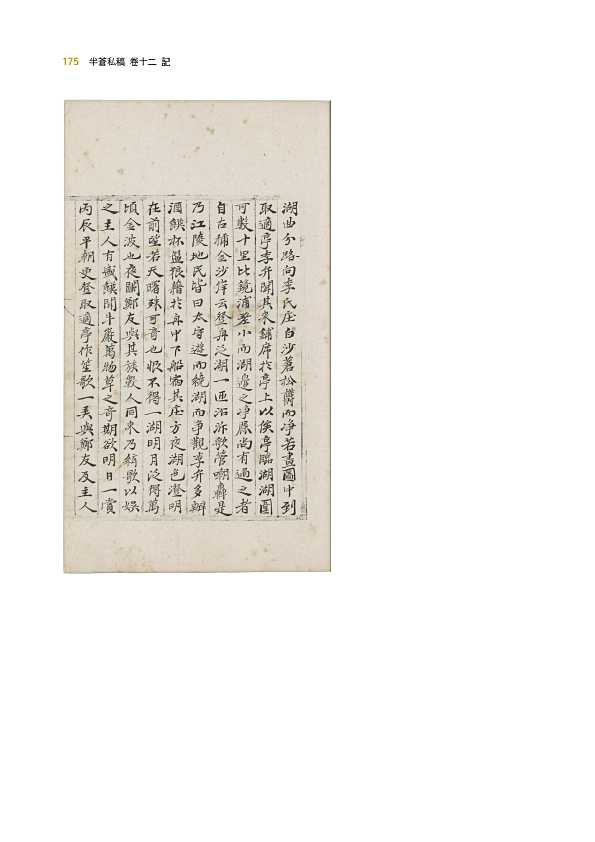 175 半蒼私稿 卷十二 記
湖曲分路向李氏庄白沙蒼松鬱而淨若畫圖中到
取適亭李弁聞其來鋪席於亭上以俟亭臨湖湖圍
可數十里比鏡浦差小而湖邊之淨麗尚有過之者
自古稱金沙伴云登舟泛湖一匝沿泝歌管嘲轟是
乃江陵地民皆曰太守遊而繞湖而爭觀李弁多辦
酒饌杯盤狼藉於舟中下船宿其庄方夜湖色澄明
在前望若天曙殊可奇也恨不得一湖明月泛得萬
頃金波也夜闌鄭友與其族數人同來乃絃歌以娛
之主人有盛饌聞牛嚴萬物草之奇期欲明日一賞
丙辰平朝更登取適亭作笙歌一美與鄭友及主人